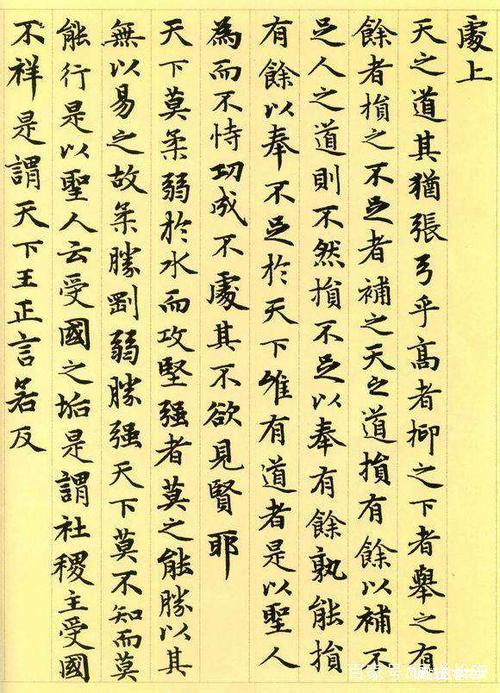 處上
天之道其猶張弓乎高者抑之下者舉之有
餘者損之不足者補之天之道損有餘以補不
足人之道則不然損不足以奉有餘孰能損
有餘以奉不足於天下唯有道者是以聖人
為而不恃功成不處其不欲見賢耶
天下莫柔弱於水而攻堅强者莫之能勝以其
無以易之故柔勝剛弱勝强天下莫不知而莫
能行是以聖人云受國之垢是謂社稷主受國
不祥是謂天下王正言若反
百家号